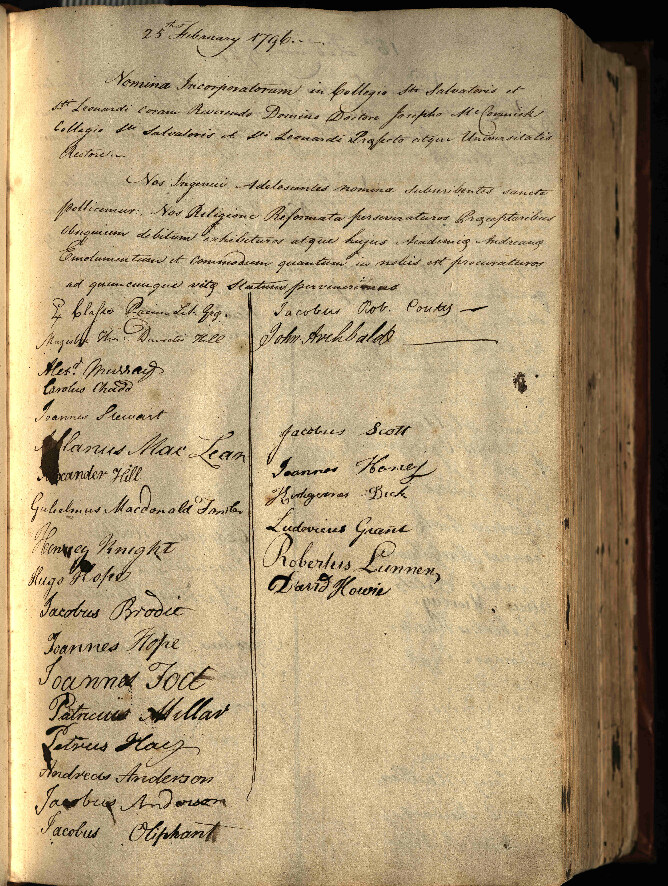 25th February 1796.
Nomina Incorporatorum in Collegio Sti Salvatoris et
Sti Leonardi coram Reverendo Domino Doctore Josepho McCormick
Collegii Sti Salvatoris et Sti Leonardi Præfecto atque Universitatis
Rectore.
Nos Ingenui Adolescentes nomina subscribentes sancte
pollicemur, Nos Religione Reformata perseveraturos Præceptoribus
obsequium debitum exhibituros atque hujus Academiæ Andreanæ
Emolumentum et commodum quantum in nobis est procuraturos
ad quemcunque vitæ Statum pervenerimus
Classe Lit. Græ.
Magistri Hill
Alexr. Murray
Carolus Chadd
Joannes Stewart
Allanus Mac Lean
Alexander Hill
Gulielmus Macdonald
Henricq Knight
Hugo Hope
Jacobus Brodie
Joannes Hope
Joannes Foot
Patricius Millar
Petrus Hay
Andreas Anderson
Jacobus Anderson
Jacobus Oliphant
Jacobus Rob. Coutts
John Archbald
Jacobus Scott
Joannes Honey
Dick
Ludovicus Grant
Robertus Lunnen
David Howie